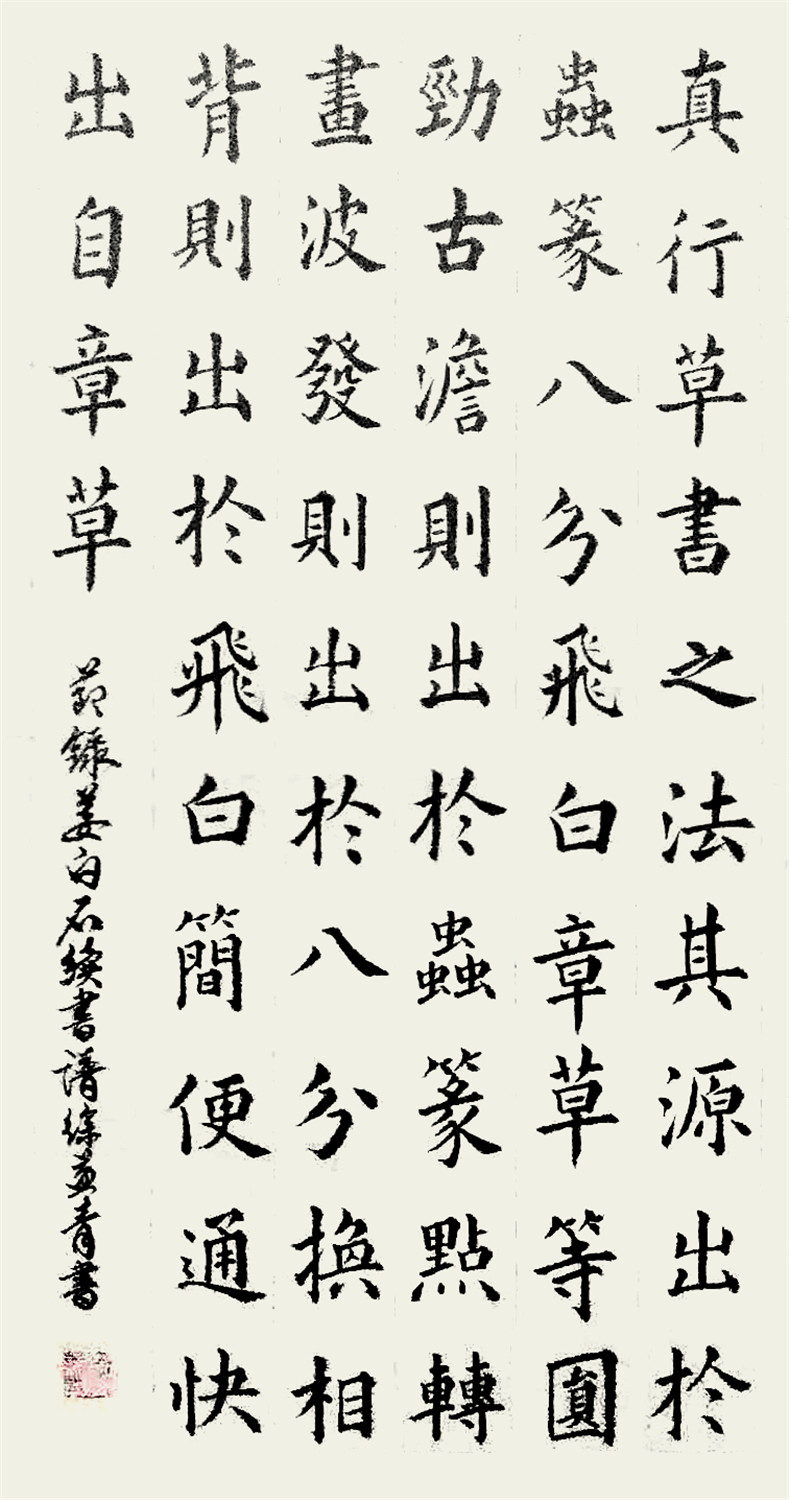 真行草書之法其源出於
蟲篆八分飛白章草等圓
勁古澹則出於蟲篆點轉
畫波發則出於八分換相
背則出於飛白簡便通快
出自章草
節錄姜白石續書譜徐 青書